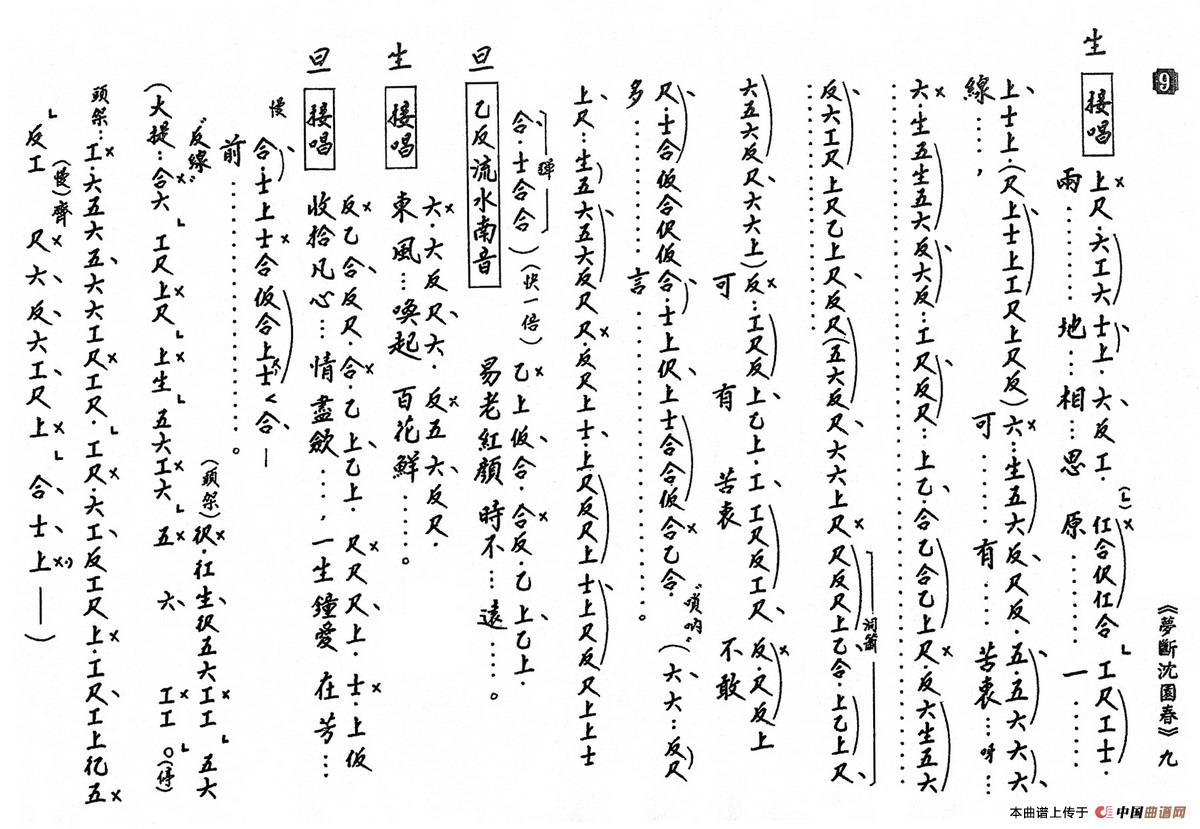 9
《夢斷沈園春》九
生
接唱
上尺·六工六士上·六反工·(乚)仩合伬仩合 工尺工士·
兩……地…相…思 原……一……
上士上·(尺上士上工尺上尺反)六…生五六反尺反·五·五六六六
線……, 可……有……苦衷…呀…
六·生五生五六反六反…工尺反尺…上乙·合乙合乙上尺·反六生五六
反六工尺上尺乙上尺反尺(五六反尺六六上尺 尺反尺上乙合·上乙上尺
洞簫
六五六反尺六六上)反…工尺反上乙上·工·工尺反工尺·反·尺反上
可 有 苦衷 不敢
尺·士合仮合伬仮合·士上伬上士合合仮合乙合
多……言……。
"嗩吶"(六六…反尺
上尺…生五六五六反尺尺·反尺上士·上尺反反尺上士上尺反尺上上士
合·士合合)(快一倍)
彈
旦
乙反流水南音
乙上仮合·合反·乙上乙上·
易老紅顏時不…遠……。
生
接唱
六·六反尺六·反五六反尺·
東風…喚起 百花鮮……。
旦
接唱
反乙合反尺合·乙上乙上·尺尺尺上·士·上仮
收拾凡心…情盡斂…,一生鐘愛 在芳…
慢
合·士上士合仮合上士<合—
前……。
"反線"
(頭架)伬·仜生伬五六工工 五六
(大提:合六 工尺上尺 上生 五六工六 五 六 工工。(停)
頭架:工·六五六五六六工尺工尺·工尺·六工反工尺上·工尺工上五
反工(慢)齊 尺六反六工尺上 合士上——)
本曲谱上传于 中国曲谱网